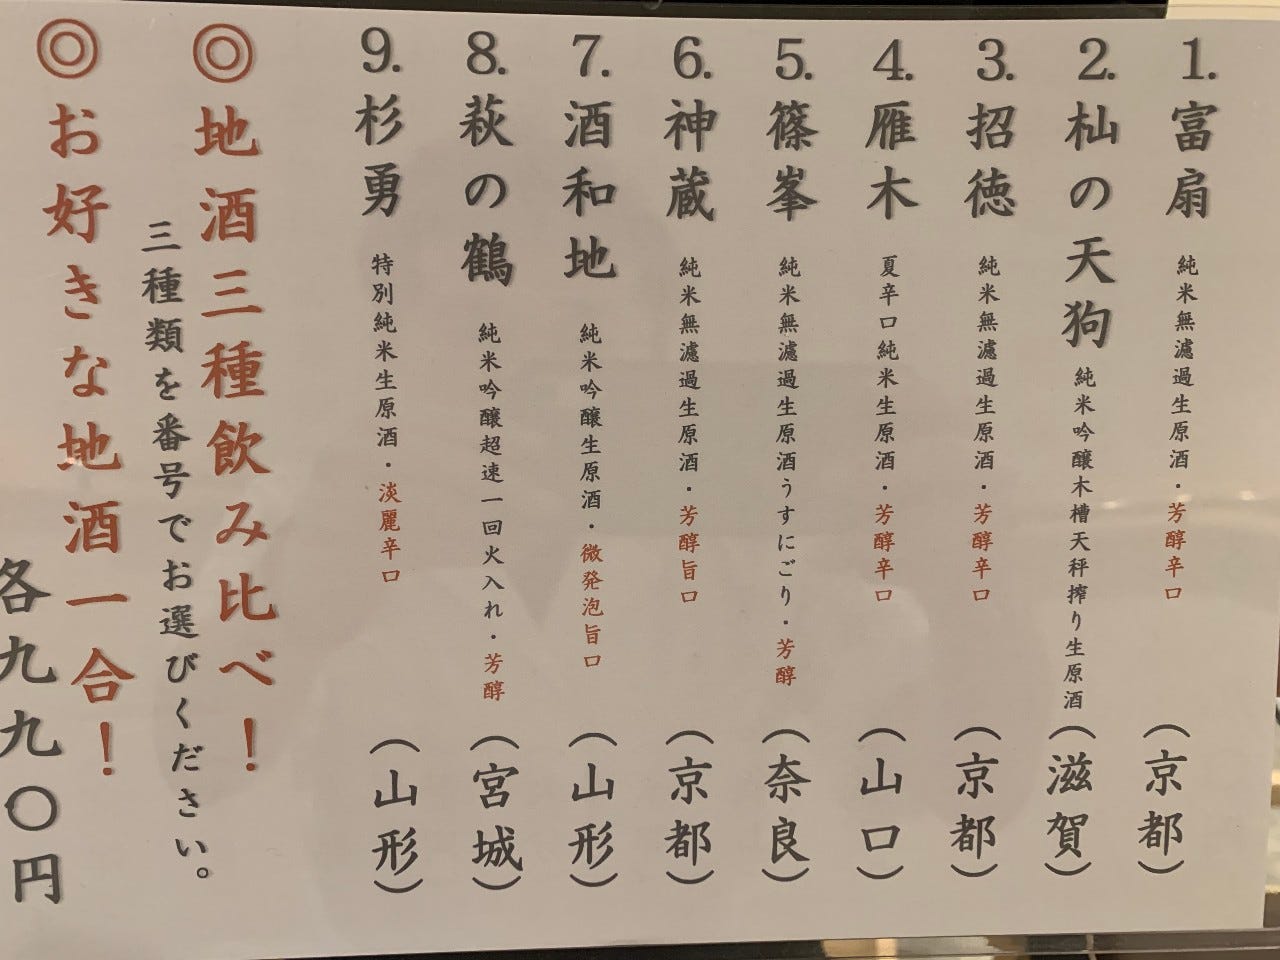 1. 富扇 純米無濾過生原酒・芳醇辛口 (京都)
2. 杣の天狗 純米吟醸木槽天秤搾り生原酒 (滋賀)
3. 招徳 純米無濾過生原酒・芳醇辛口 (京都)
4. 雁木 夏辛口純米生原酒・芳醇辛口 (山口)
5. 篠峯 純米無濾過生原酒うすにごり・芳醇 (奈良)
6. 神蔵 純米無濾過生原酒・芳醇旨口 (京都)
7. 酒和地 純米吟醸生原酒・微発泡旨口 (山形)
8. 萩の鶴 純米吟醸超速一回火入れ・芳醇 (宮城)
9. 杉勇 特別純米生原酒・淡麗辛口 (山形)
◎地酒三種飲み比べ!
三種類を番号でお選びください。
◎お好きな地酒一合!
各九九〇円